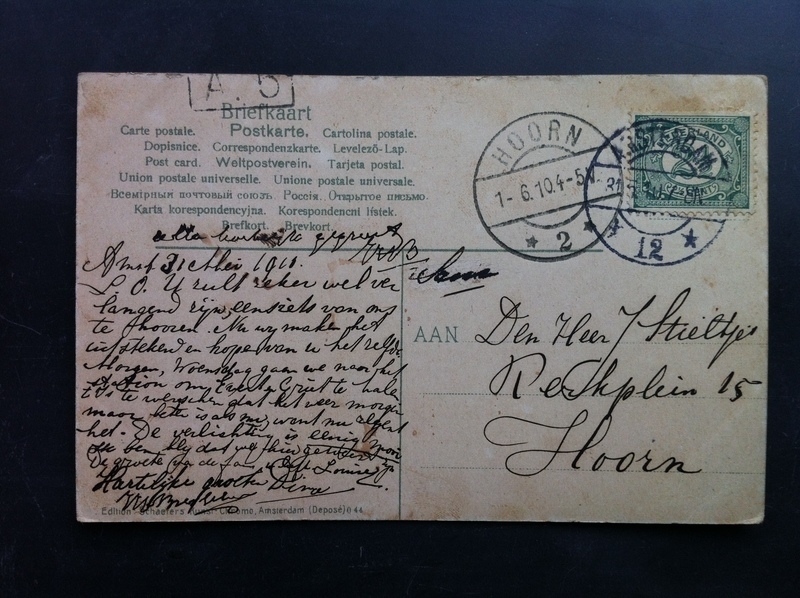 A. 5
Briefkaart
Carte postale. Postkarte. Cartolina postale.
Dopisnice. Correspondenzkarte. Levelező-Lap.
Post card. Weltpostverein. Tarjeta postal.
Union postale universelle. Unione postale universale.
Всемірный почтовый союзъ. Россія. Открытое письмо.
Karta korespondencyjna. Korespondenci lístek.
Brefkort. Brevkort.
HOORN
1- 6.10.4-5N
2
NEDERLAND
AMSTERDAM
12
alle hartelijk gegroet
Amst 31 Mei 1910.
L. O. U zult zeker wel ver
langend zijn, eens iets van ons
te hooren. Nu wij maken het
uitstekend en hopen van u het zelfde
Morgen, Woensdag gaan we naar het
station om te halen
't is te wenschen dat het weer morgen
maar beter is als nu, want nu regent
het. De verlichting is eenig mooi
ben blij dat we hier
De groete van de Louise
Hartelijke groeten Dina
AAN Den Heer J Stieltjes
Kerkplein 15
Hoorn
Edition Schaefers Kunst-Chromo, Amsterdam (Deposé) 044